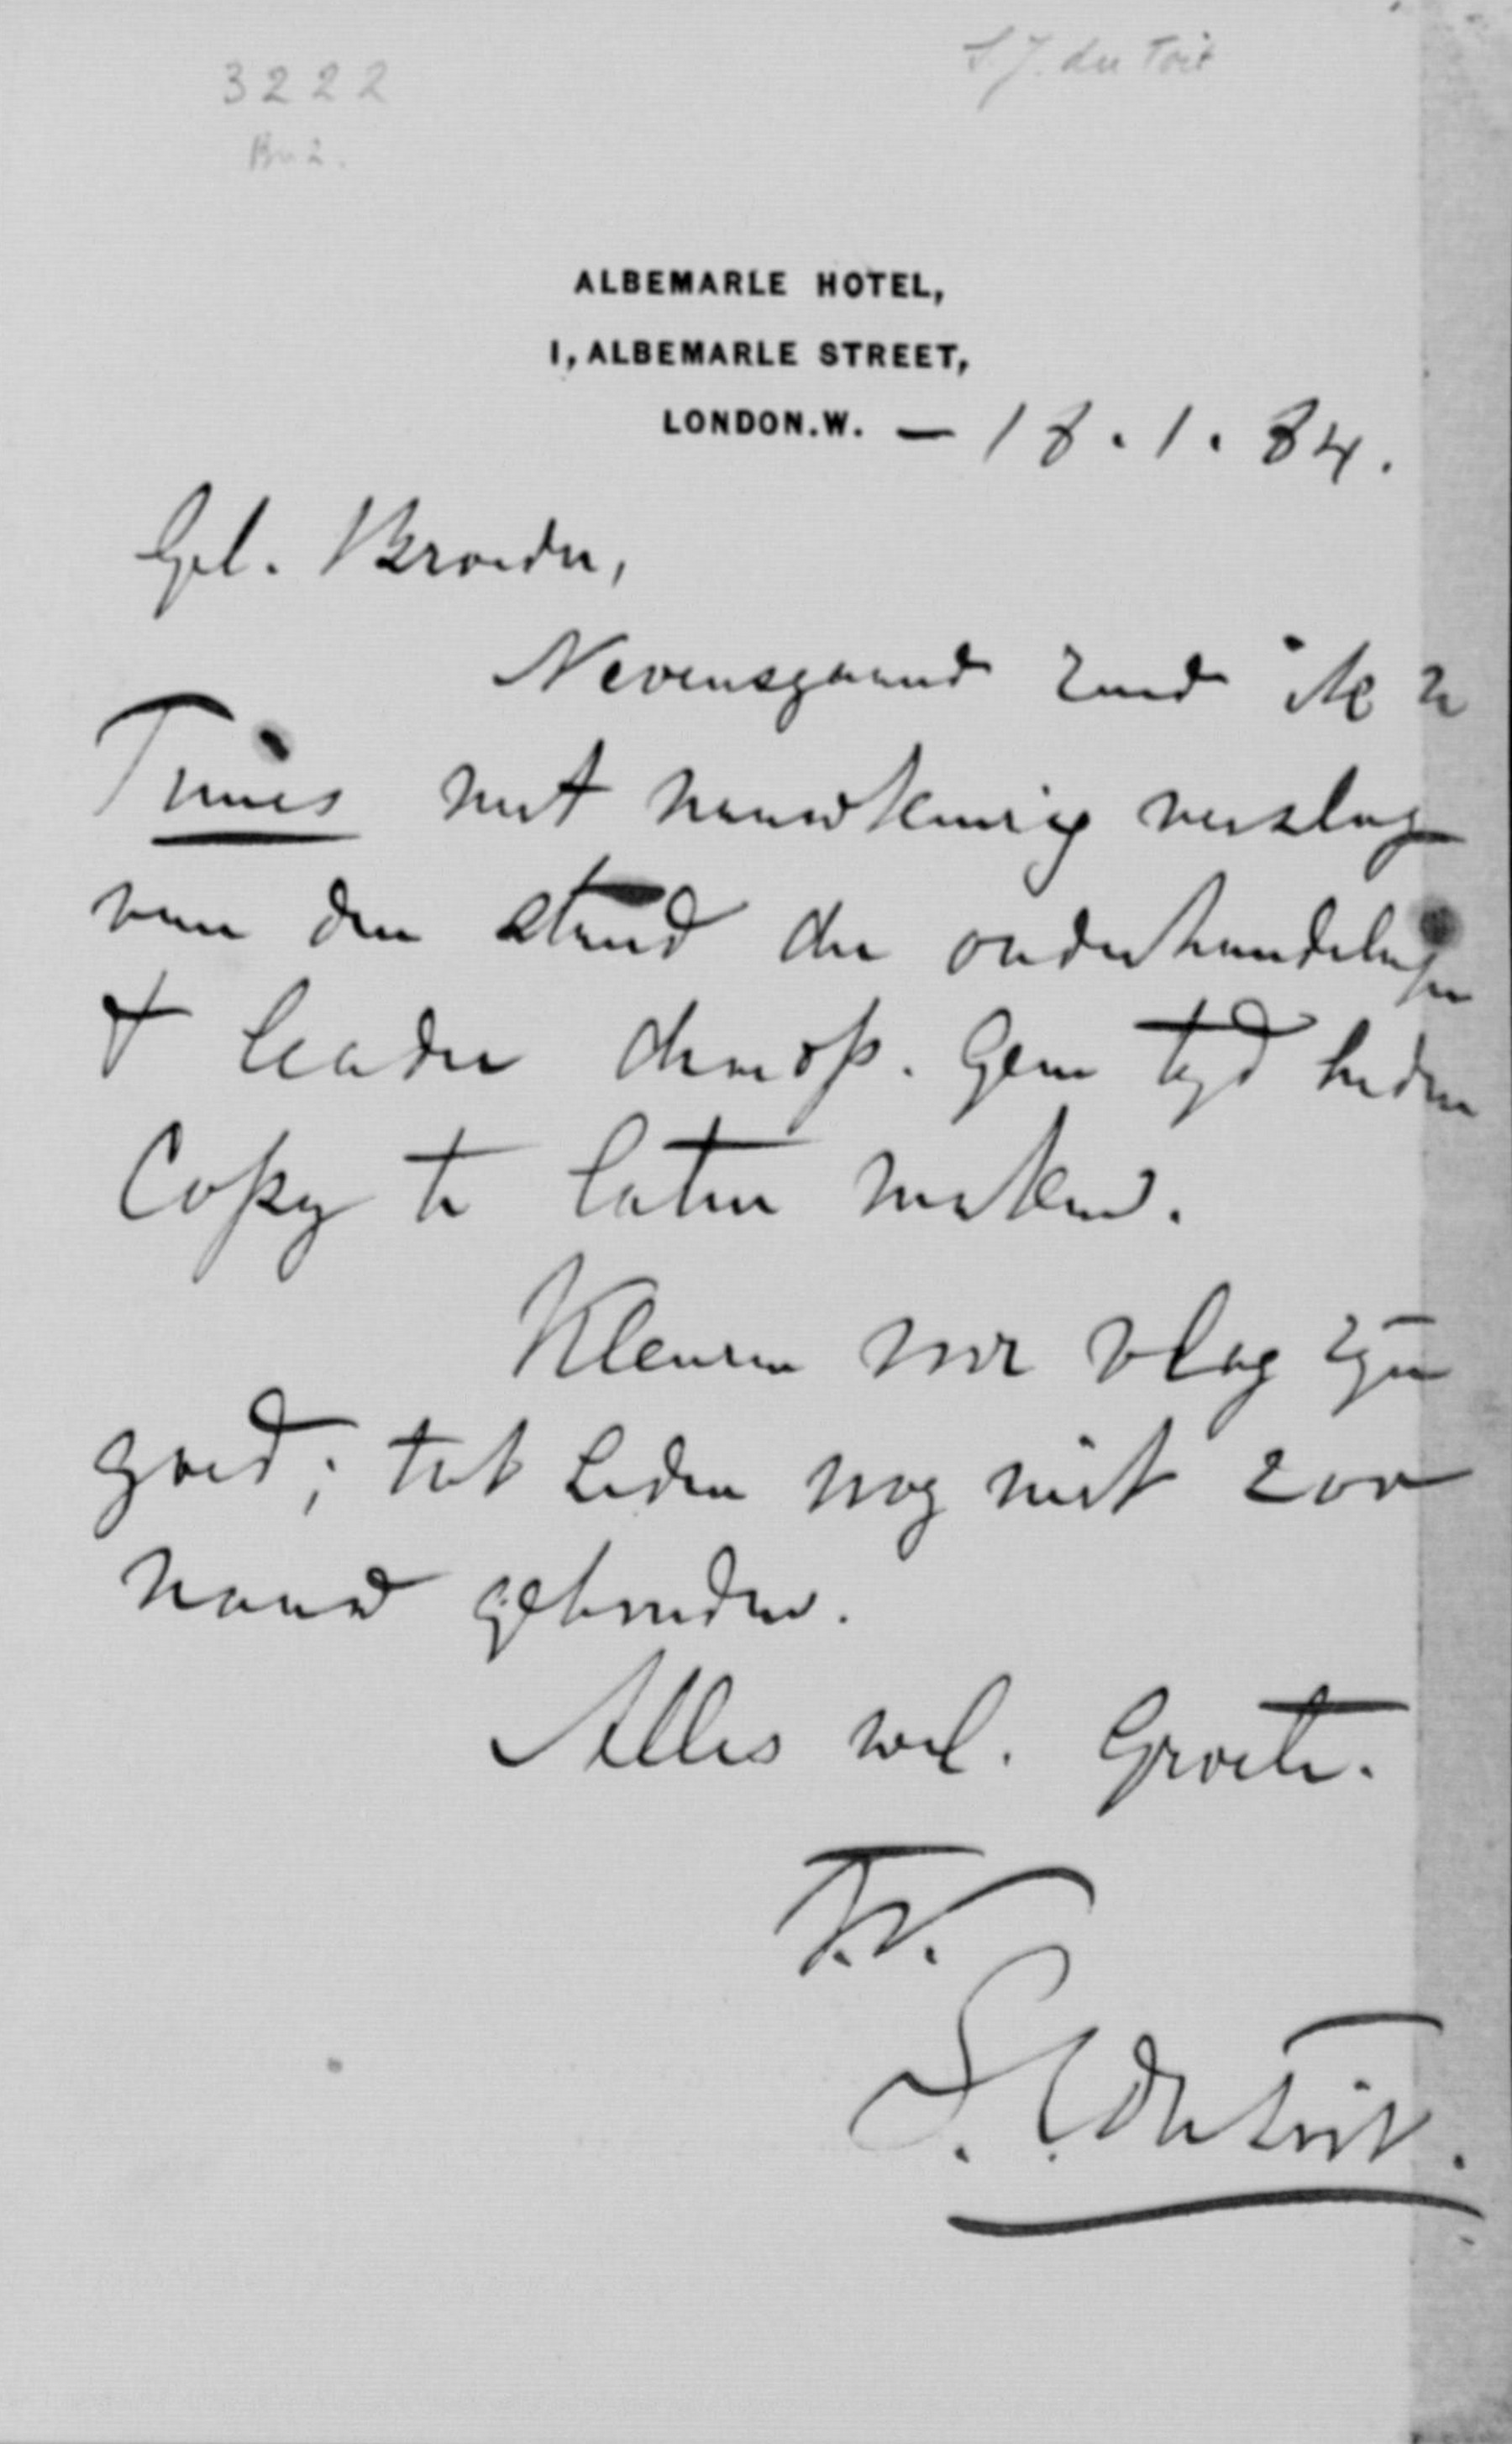 3222
S.J. du Toit
ALBEMARLE HOTEL,
1, ALBEMARLE STREET,
LONDON.W. — 18.1.84.
Gel. Broeder,
Nevensgaand zend ik u
Times met nauwkeurig verslag
van den stand der onderhandelingen
& leader daarop. Geen tyd heden
Copy te laten maken.
Kleuren voor vlag zyn
goed; tot heden nog niet zoo
nauw gebonden.
Alles wel. Groete.
T.V.
S.J. du Toit.